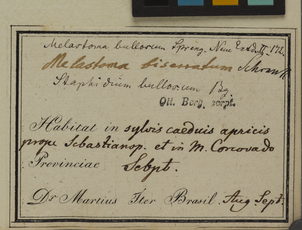 Melastoma bullosum Spreng. Neue Entd. II. 172.
Melastoma biserratum Schrank
Staphidium bullosum Bg
Ott. Berg. script.
Habitat in sylvis caeduis apricis
prope Sebastianop. et in M. Corcovado
Provinciae Sebpt.
Dr Martius Iter Brasil. Aug Sept.